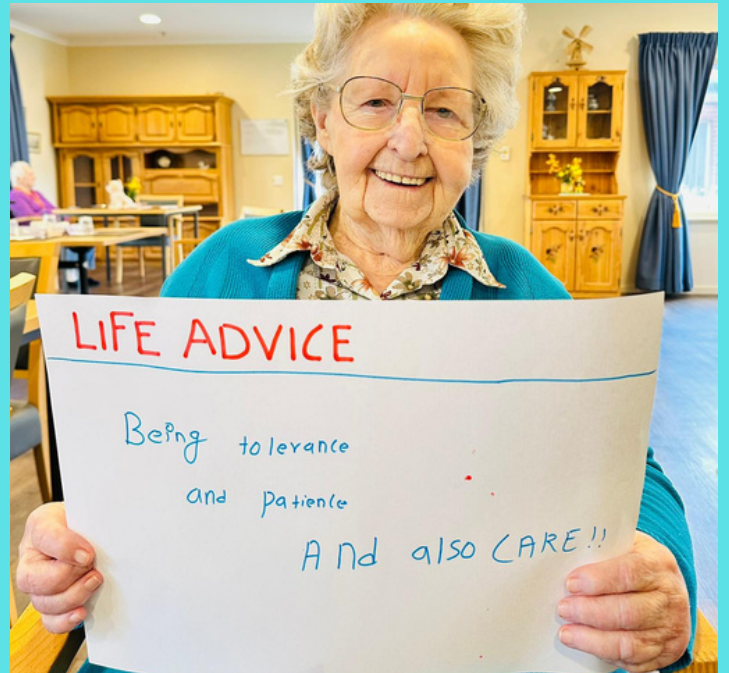 LIFE ADVICE
Being tolerance
and patience
And also CARE!!